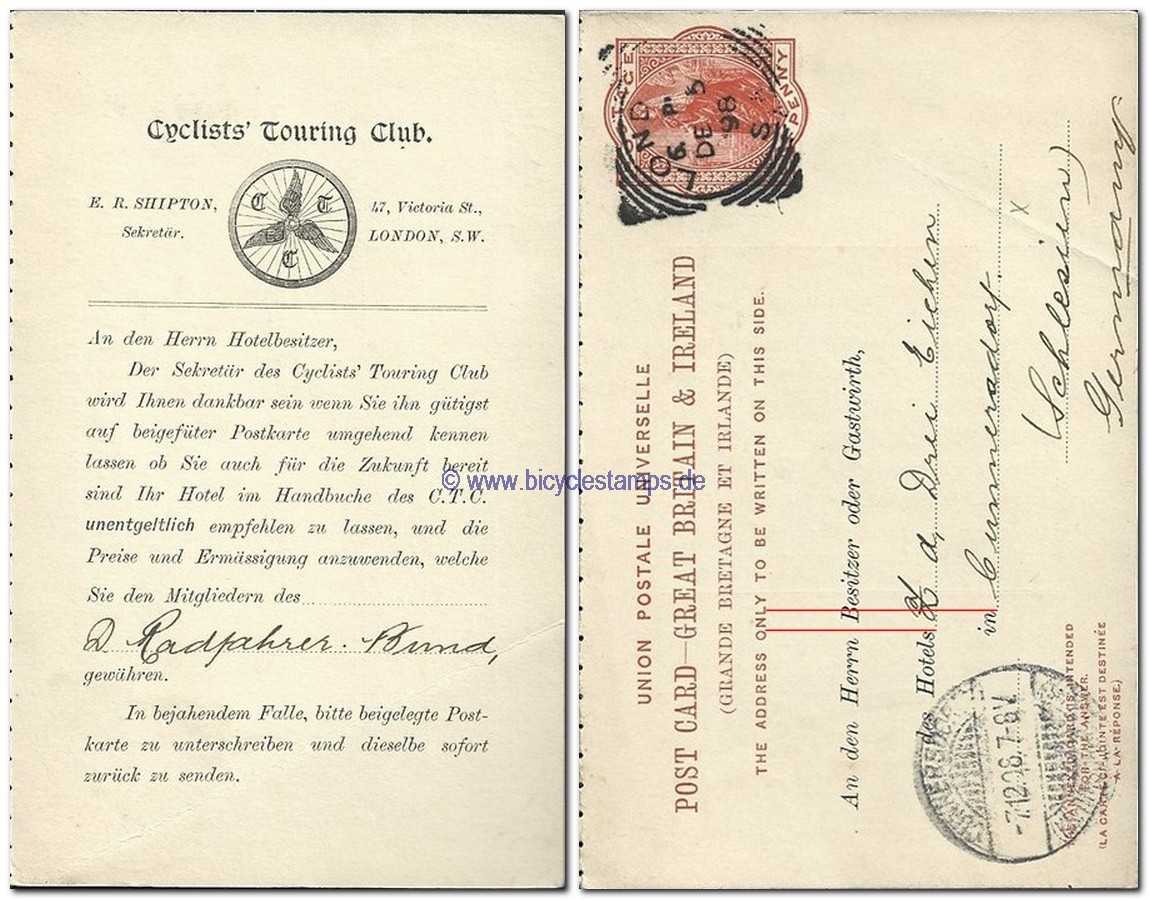 Cyclists' Touring Club.
E. R. SHIPTON,
Sekretär.
C T C
47, Victoria St.,
LONDON, S.W.
An den Herrn Hotelbesitzer,
Der Sekretär des Cyclists' Touring Club
wird Ihnen dankbar sein wenn Sie ihn gütigst
auf beigefüter Postkarte umgehend kennen
lassen ob Sie auch für die Zukunft bereit
sind Ihr Hotel im Handbuche des C.T.C.
unentgeltlich empfehlen zu lassen, und die
Preise und Ermässigung anzuwenden, welche
Sie den Mitgliedern des
D Radfahrer. Bund,
gewähren.
In bejahendem Falle, bitte beigelegte Post-
karte zu unterschreiben und dieselbe sofort
zurück zu senden.
© www.bicyclestamps.de
LOND
6 P
DE 5
98
S
PENNY
UNION POSTALE UNIVERSELLE
POST CARD-GREAT BRITAIN & IRELAND
(GRANDE BRETAGNE ET IRLANDE)
THE ADDRESS ONLY TO BE WRITTEN ON THIS SIDE.
An den Herrn Besitzer oder Gastwirth,
des Hotels z d, Drei Eichen
in Cunnersdorf.
(Schlesien)
Germany
7.12.98.7-8V.
THE ANNEXED CARD IS INTENDED
FOR THE ANSWER.
(LA CARTE CI-JOINTE EST DESTINÉE
A LA RÉPONSE.)